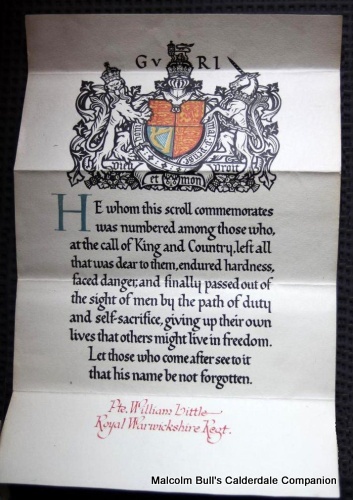 GvRI
HONI SOIT QUI MAL Y PENSE
Dieu
et mon
Droit
HE whom this scroll commemorates
was numbered among those who,
at the call of King and Country, left all
that was dear to them, endured hardness,
faced danger, and finally passed out of
the sight of men by the path of duty
and self-sacrifice, giving up their own
lives that others might live in freedom.
Let those who come after see to it
that his name be not forgotten.
Pte. William Little
Royal Warwickshire Regt.
Malcolm Bull's Calderdale Companion